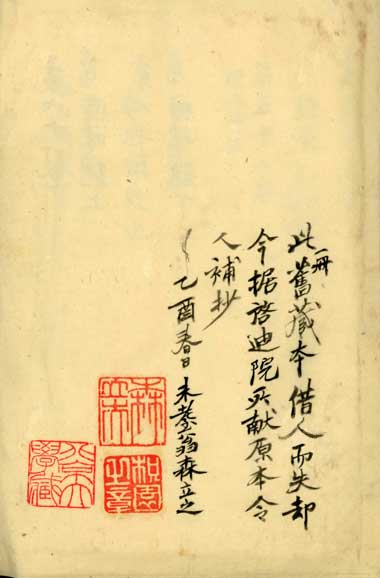 此一冊舊藏本借人而失却
今据啓迪院所獻原本令
人補抄
乙酉春日 翁森立之
枳園之章